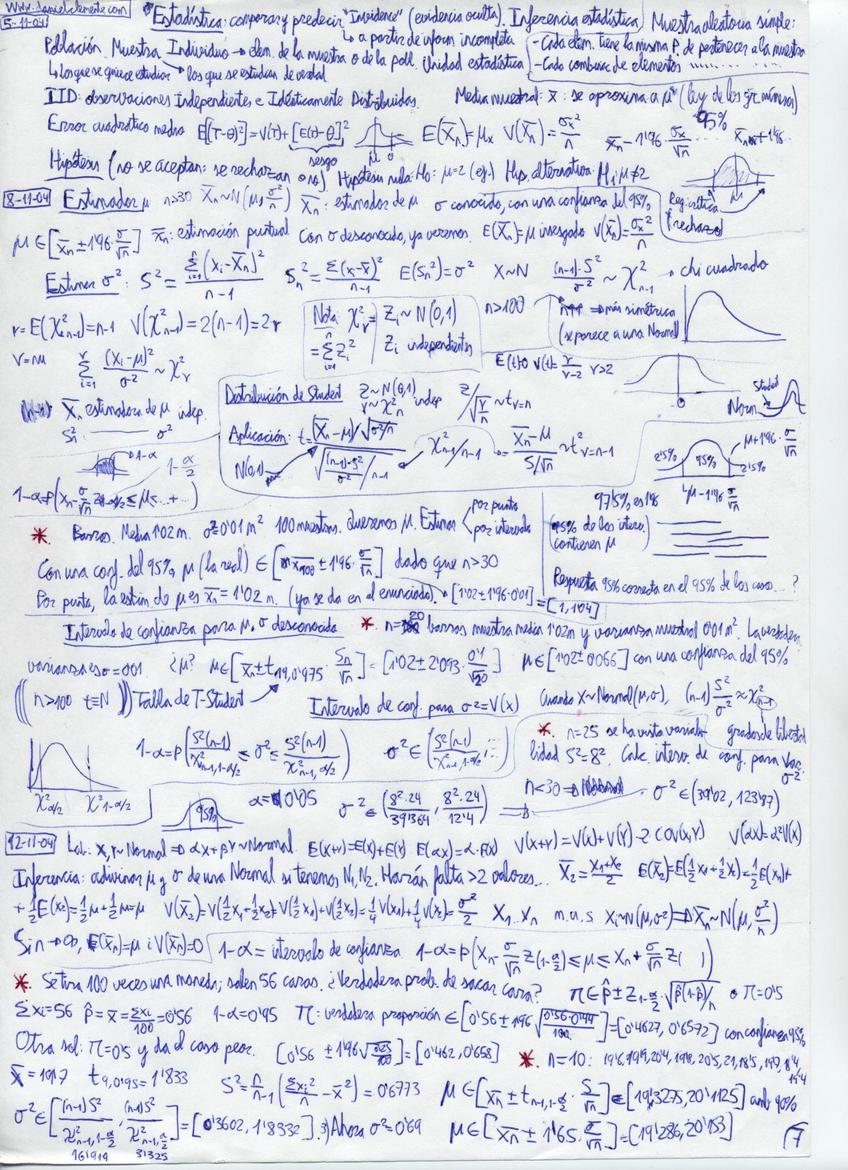 www.danielclemente.com
5-11-04
Estadística: comparar y predecir "Invidence" (evidencia oculta). Inferencia estadística
↳ a partir de inform. incompleta
Muestra aleatoria simple:
- Cada elem. tiene la misma P. de pertenecer a la muestra
- Cada combinac. de elementos ........
Población. Muestra. Individuo → elem. de la muestra o de la pobl. Unidad estadística
↳ los que se quiere estudiar ↳ los que se estudian de verdad
IID: observaciones Independientes e Idénticamente Distribuidas. Media muestral: x̄: se aproxima a μ (ley de los gr. números)
Error cuadrático medio E[(T-θ)²] = V(t) + [E(t)-θ]² E(X̄n) = μx V(X̄n) = σx²/n
sesgo
95%
x̄n - 1'96 · σx/√n x̄n + 1'96..
Hipótesis (no se aceptan: se rechazan o no) Hipótesis nula: H0: μ=2 (ej.) Hip. alternativa: H1: μ≠2
Reg. crítica (rechazo)
8-11-04 Estimador μ n>30 X̄n ~ N(μ, σ²/n) X̄n: estimador de μ σ conocido, con una confianza del 95%
μ ∈ [x̄n ± 1'96 · σ/√n] x̄n: estimación puntual Con σ desconocido, ya veremos. E(X̄n)=μ insesgado V(x̄n) = σx²/n
Estimar σ²: S² = Σ(xi - X̄n)² / n-1 Sn² = Σ(xi-x̄)²/n E(Sn²) = σ² X~N (n-1)·S²/σ² ~ χ²n-1 → chi cuadrado
γ = E(χ²n-1) = n-1 V(χ²n-1) = 2(n-1) = 2γ
Nota: χ²γ = Σ Zi² Zi ~ N(0,1) Zi independientes
n>100 n↑↑ ⇒ más simétrica (se parece a una Normal)
Σ (Xi-μ)²/σ² ~ χ²γ
E(t)=0 V(t) = γ/γ-2 γ>2
X̄n estimadora de μ indep.
Sn² ——— σ²
Distribución de Student Z~N(0,1) V~χ²n indep Z/√(V/n) ~ tν=n
Student
Norm
Aplicación: t = (X̄n-μ)/√(σ²/n) / √((n-1)·S²/σ² /n-1) χ²n-1/n-1 = X̄n-μ / S/√n ~ tν=n-1
N(0,1)
1-α 1-α/2
2'5% 95% 2'5% μ+1'96 · σ/√n
μ-1'96 σ/√n
97'5% es 1'96
95% de los interv. contienen μ
Respuesta 95% correcta en el 95% de los casos...?
* Barras. Media 1'02m. σ²=0'01 m² 100 muestras. Queremos μ. Estimar < por punto por intervalo
Con una conf. del 95%, μ (la real) ∈ [x̄100 ± 1'96 · σ/√n] dado que n>30
Por punto, la estim. de μ es x̄n = 1'02 m. (ya se da en el enunciado). [1'02 ± 1'96·0'01] = [1, 1'04]
Intervalo de confianza para μ, σ desconocida * n=20 barras muestra media 1'02m y varianza muestral 0'01 m². La verdadera
varianza es σ=001 ¿μ? μ ∈ [x̄n ± t19,0'975 · Sn/√n] = [1'02 ± 2'093 · 0'1/√20] μ ∈ [1'02 ± 0'066] con una confianza del 95%
(((n>100 t≅N))) Tabla de T-Student
Intervalo de conf. para σ²=V(x) Cuando X~Normal(μ,σ), (n-1) S²/σ² ≈ χ²n-1
grados de libertad
1-α = P(S²(n-1)/χ²n-1,1-α/2 ≤ σ² ≤ S²(n-1)/χ²n-1,α/2) σ² ∈ (S²(n-1)/χ²n-1,1-α/2, ...)
* n=25 se ha visto variabilidad S²=8². Calc. interv. de conf. para var. σ²
χ²α/2 χ²1-α/2
n<30 ⇒ Normal
95% α=0'05 σ² ∈ (8²·24/39'364, 8²·24/12'4) ⇒ σ² ∈ (39'02, 123'87)
12-11-04 Lab.: X,Y~Normal ⇒ αX+βY~Normal. E(x+Y)=E(X)+E(Y) E(αx)=α·E(X) V(X+Y)=V(X)+V(Y)-2 COV(X,Y) V(αX)=α²V(X)
Inferencia: adivinar μ y σ de una Normal si tenemos N1,N2. Harán falta >2 valores... X̄2 = x1+x2/2 E(X̄2)=E(½x1+½x2)=½E(x1)+
+½E(x2)=½μ+½μ=μ V(X̄2)=V(½x1+½x2)=V(½x1)+V(½x2)=¼V(x1)+¼V(x2)=σ²/2 X1..Xn m.a.s Xi~N(μ,σ²)⇒X̄n~N(μ,σ²/n)
Si n→∞, E(x̄n)=μ i V(X̄n)=0 1-α = intervalo de confianza 1-α = P(Xn - σ/√n Z(1-α/2) ≤ μ ≤ Xn + σ/√n Z( ))
* Se tira 100 veces una moneda; salen 56 caras. ¿Verdadera prob. de sacar cara? π ∈ p̂ ± Z1-α/2 · √(p̂(1-p̂)/n) o π=0'5
Σxi=56 p̂=x̄=Σxi/100=0'56 1-α=0'95 π: verdadera proporción ∈ [0'56 ± 1'96 √(0'56·0'44/100)] = [0'4627, 0'6572] con confianza 95%
Otra sol: π=0'5 y da el caso peor. [0'56 ± 1'96 √(0'25/100)] = [0'462, 0'658] * n=10: 19'6, 19'9, 20'4, 19'8, 20'5, 21, 18'5, 19'7, 18'4, 19'4
x̄=19'7 t9,0'95=1'833 S² = n/n-1 (Σxi²/n - x̄²) = 0'6773 μ ∈ [x̄n ± tn-1,1-α/2 · S/√n] ∈ [19'3275, 20'1125] amb 90%
σ² ∈ [(n-1)S²/χ²n-1,1-α/2, (n-1)S²/χ²n-1,α/2] = [0'3602, 1'8332] 3) Ahora σ²=0'69 μ ∈ [x̄n ± 1'65 · σ/√n] = [19'286, 20'153]
16'919 3'325
7